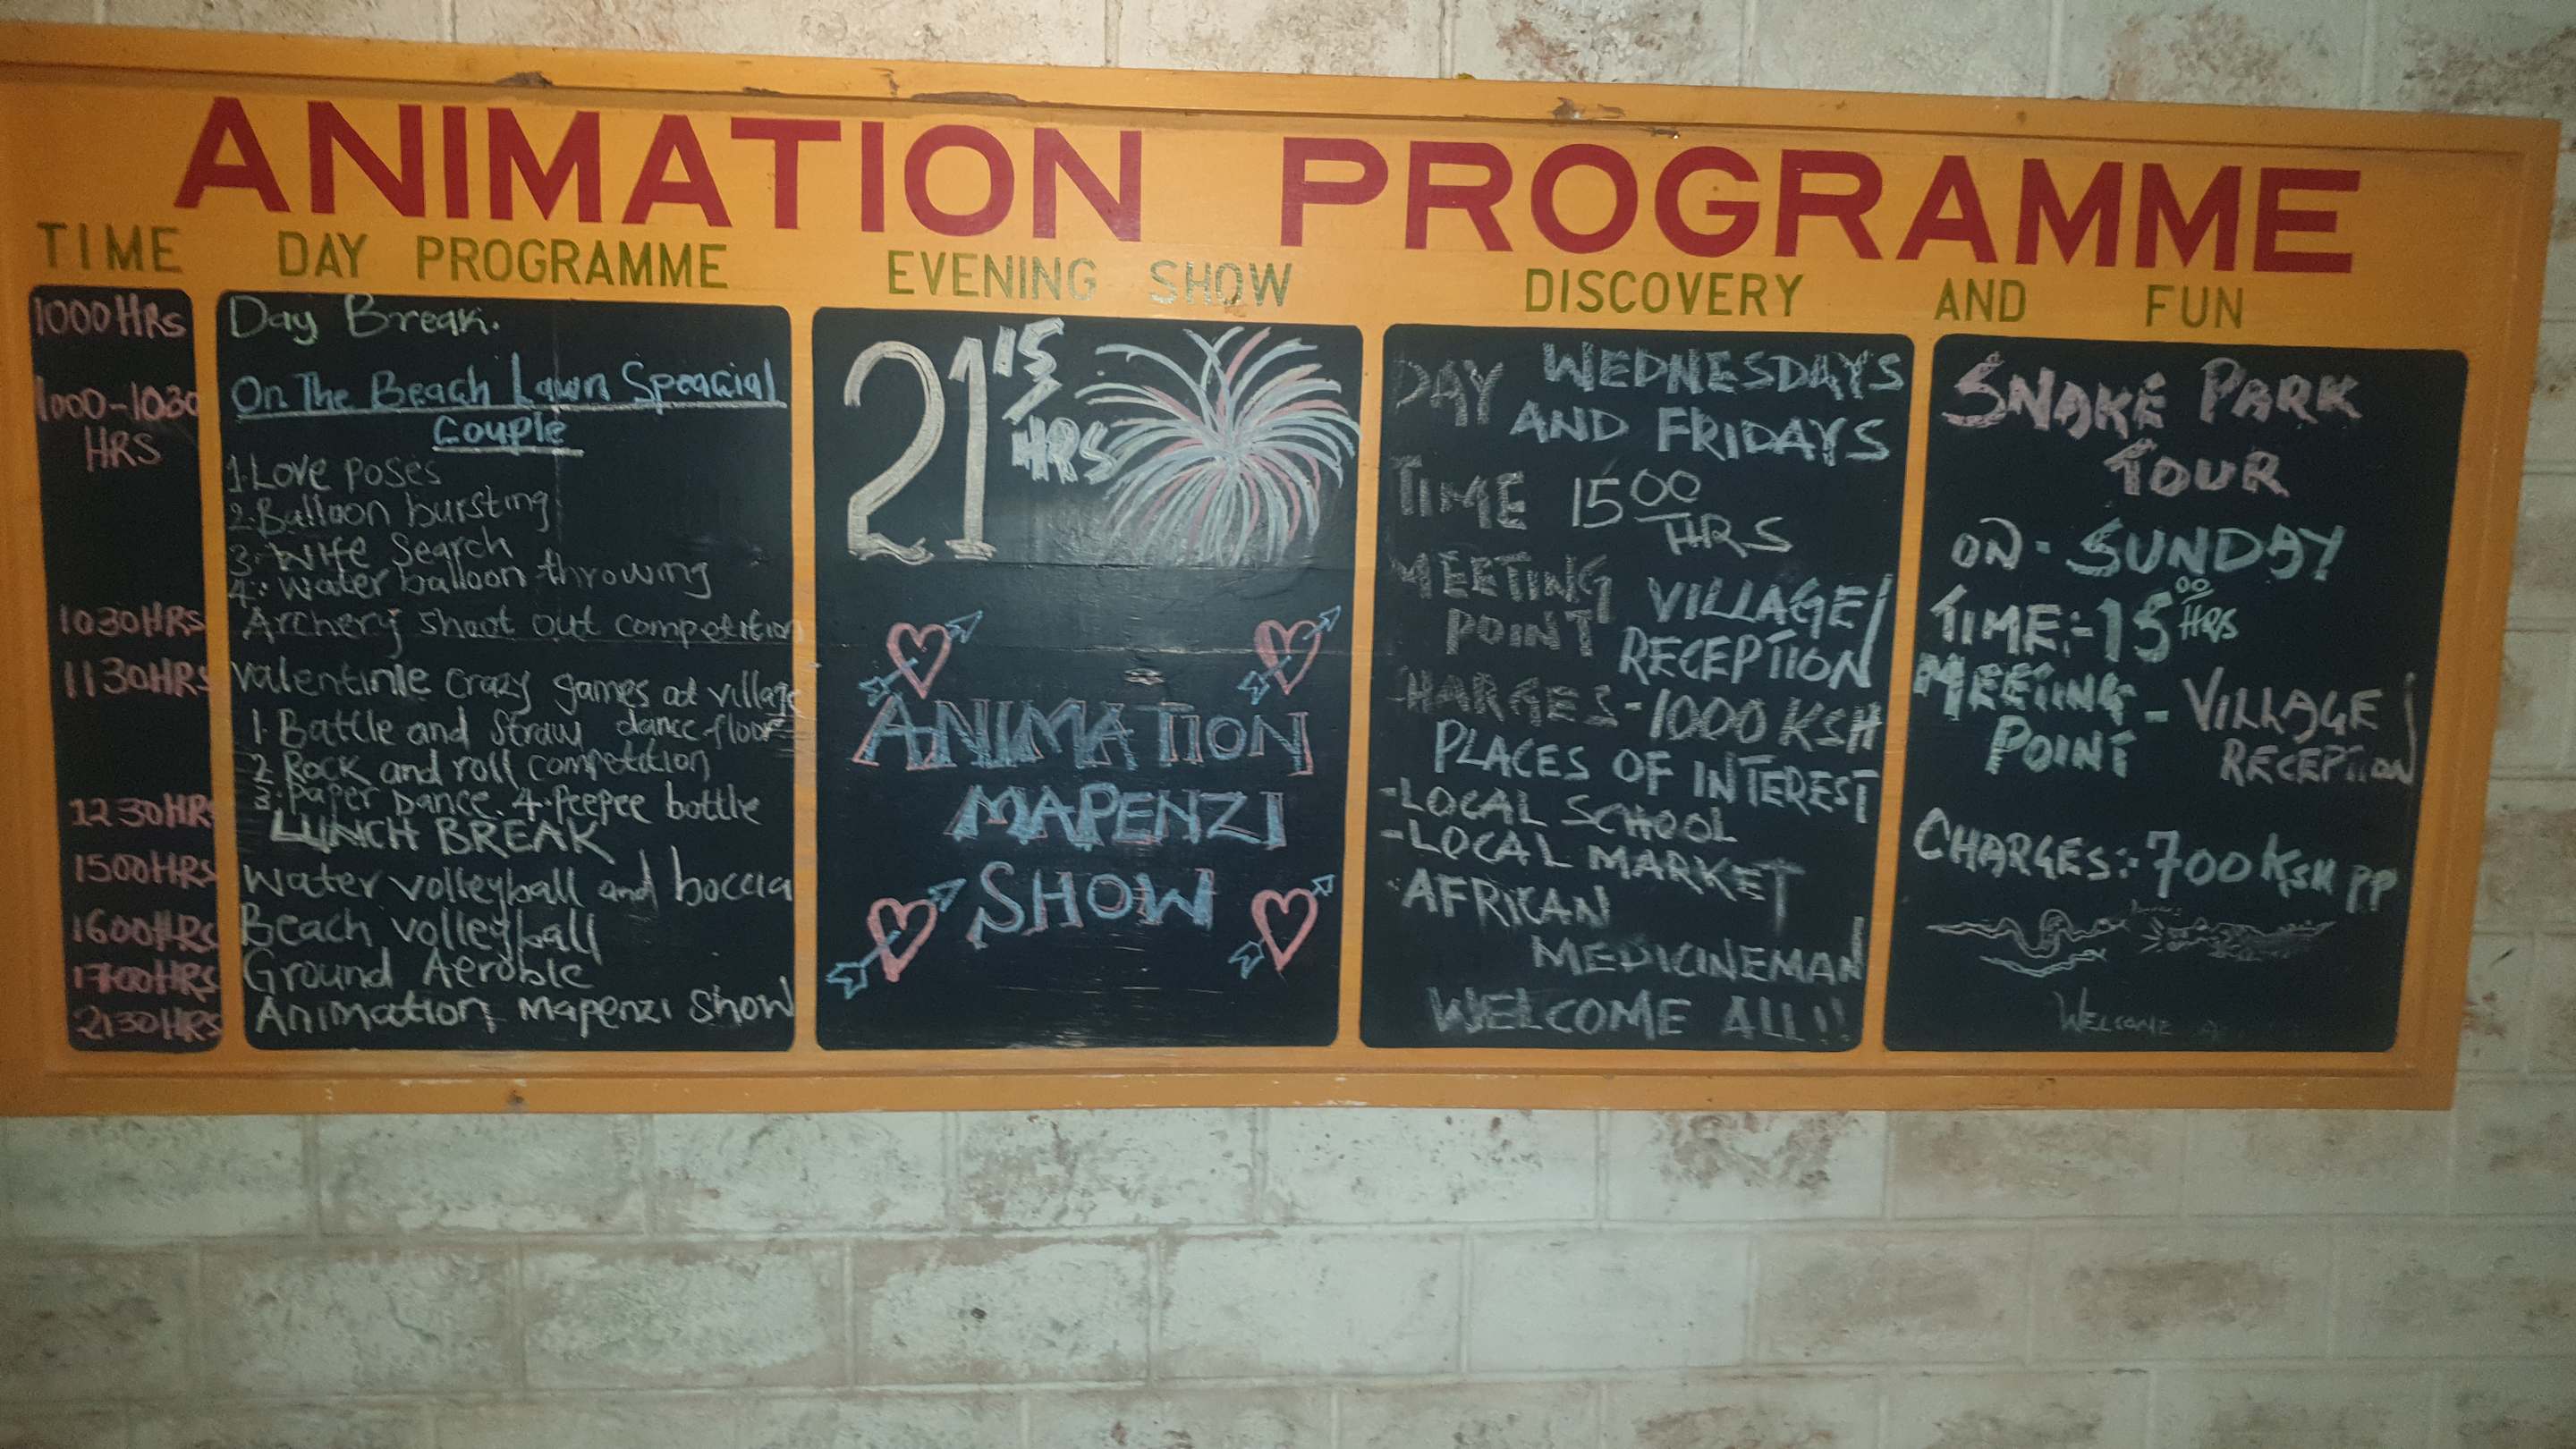 ANIMATION PROGRAMME
TIME
1000HRs
1000-1030
HRS
1030HRs
1130HRs
1230HR
1500HRs
1600HRs
1700HRs
2130HRs
DAY PROGRAMME
Day Break.
On The Beach Lawn Speacial
Couple
1. Love poses
2. Balloon bursting
3. Wife Search
4. Water balloon throwing
Archery shoot out competition
Valentinle crazy games at village
1. Battle and Straw dance floor
2. Rock and roll competition
3. Paper Dance. 4. Peepee bottle
LUNCH BREAK
Water volleyball and boccia
Beach volleyball
Ground Aeroble
Animation Mapenzi Show
EVENING SHOW
21 15
HRS
ANIMATION
MAPENZI
SHOW
DISCOVERY AND FUN
DAY WEDNESDAYS
AND FRIDAYS
TIME 15 00
HRS
MEETING VILLAGE
POINT RECEPTION
HARGES-1000 KSH
PLACES OF INTEREST
-LOCAL SCHOOL
-LOCAL MARKET
-AFRICAN
MEDICINEMAN
WELCOME ALL!!
SNAKE PARK
TOUR
ON - SUNDAY
TIME:-15 00 HRS
MEETING - VILLAGE
POINT RECEPTION
CHARGES:-700 KSH PP
WELCOME